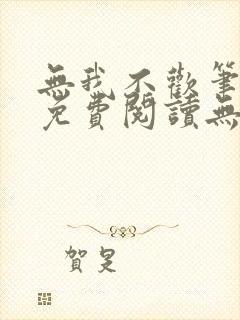 無我不歡筆
免費閱讀無
賀是